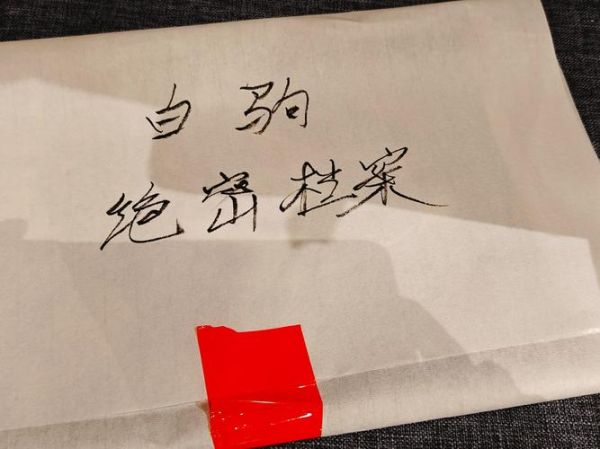 白驹
绝密档案